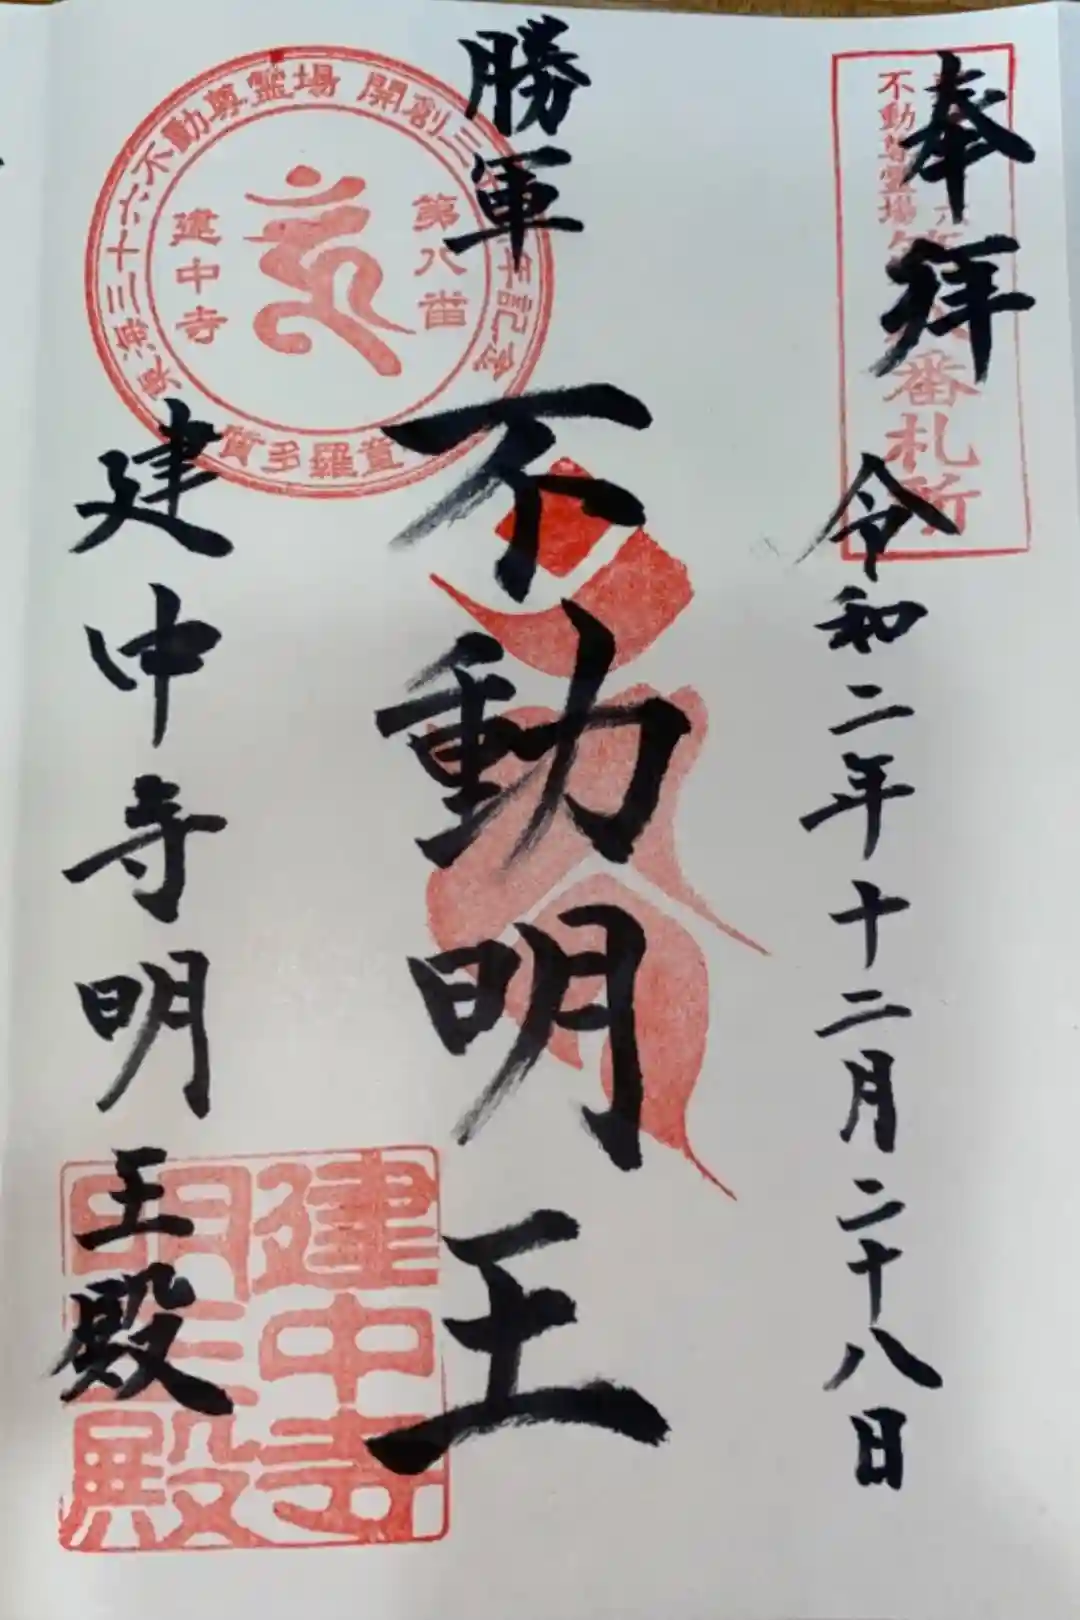 奉拝
令和二年十二月二十八日
勝軍
不動明王
建中寺明王殿
不動尊霊場
番札所
東海三十六不動尊霊場 開創三
年記念
第八番
建中寺
質多羅童
建中寺
明王殿